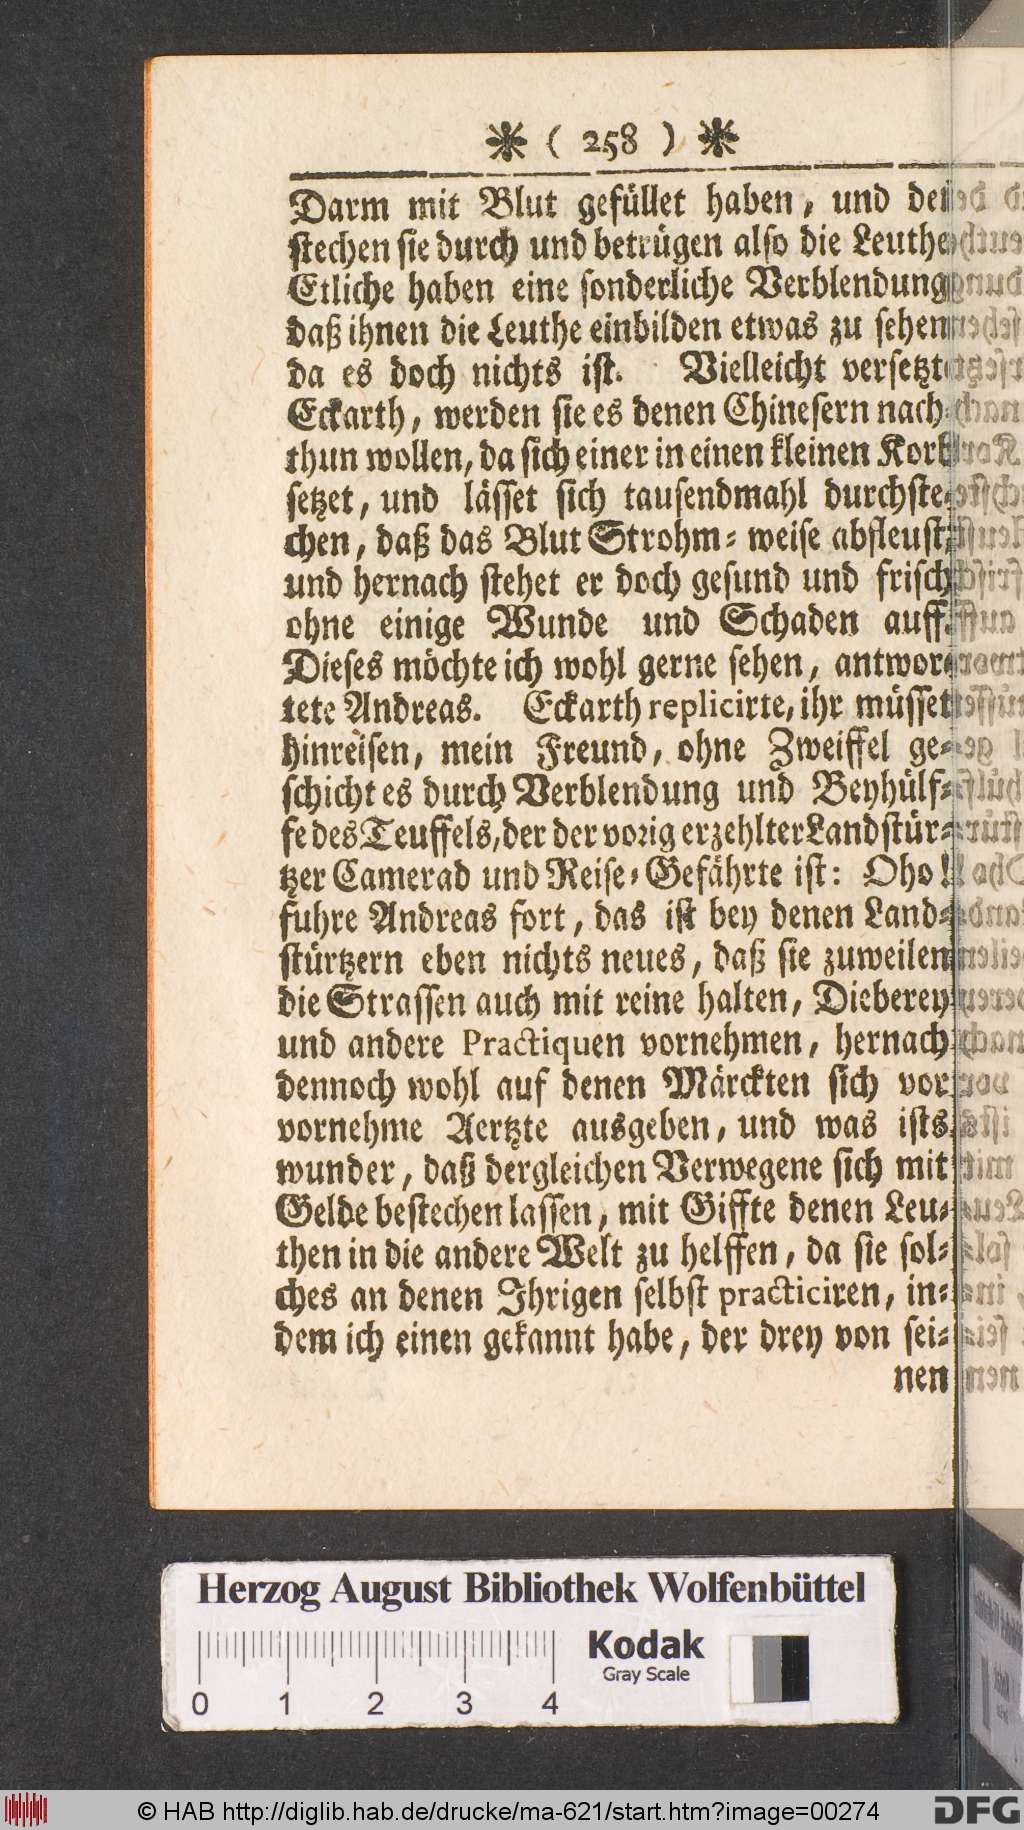 ❋ ( 258 ) ❋
Darm mit Blut gefüllet haben, und
stechen sie durch und betrügen also die Leuthe
Etliche haben eine sonderliche Verblendung
daß ihnen die Leuthe einbilden etwas zu sehen
da es doch nichts ist. Vielleicht versetzte
Eckarth, werden sie es denen Chinesern nach
thun wollen, da sich einer in einen kleinen Korb
setzet, und lässet sich tausendmahl durchste-
chen, daß das Blut Strohm-weise abfleust,
und hernach stehet er doch gesund und frisch
ohne einige Wunde und Schaden auff.
Dieses möchte ich wohl gerne sehen, antwor-
tete Andreas. Eckarth replicirte, ihr müsset
hinreisen, mein Freund, ohne Zweiffel ge-
schicht es durch Verblendung und Beyhülf-
fe des Teuffels, der der vorig erzehlter Landstür-
tzer Camerad und Reise-Gefährte ist: Oho!
fuhre Andreas fort, das ist bey denen Land-
stürtzern eben nichts neues, daß sie zuweilen
die Strassen auch mit reine halten, Dieberey
und andere Practiquen vornehmen, hernach
dennoch wohl auf denen Märckten sich vor
vornehme Aertzte ausgeben, und was ists
wunder, daß dergleichen Verwegene sich mit
Gelde bestechen lassen, mit Giffte denen Leu-
then in die andere Welt zu helffen, da sie sol-
ches an denen Ihrigen selbst practiciren, in-
dem ich einen gekannt habe, der drey von sei-
nen
Herzog August Bibliothek Wolfenbüttel
Kodak
Gray Scale
0 1 2 3 4
© HAB http://diglib.hab.de/drucke/ma-621/start.htm?image=00274
DFG